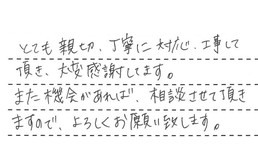 とても親切、丁寧に対応、工事して
頂き、大変感謝してます。
また機会があれば、相談させて頂き
ますので、よろしくお願い致します。